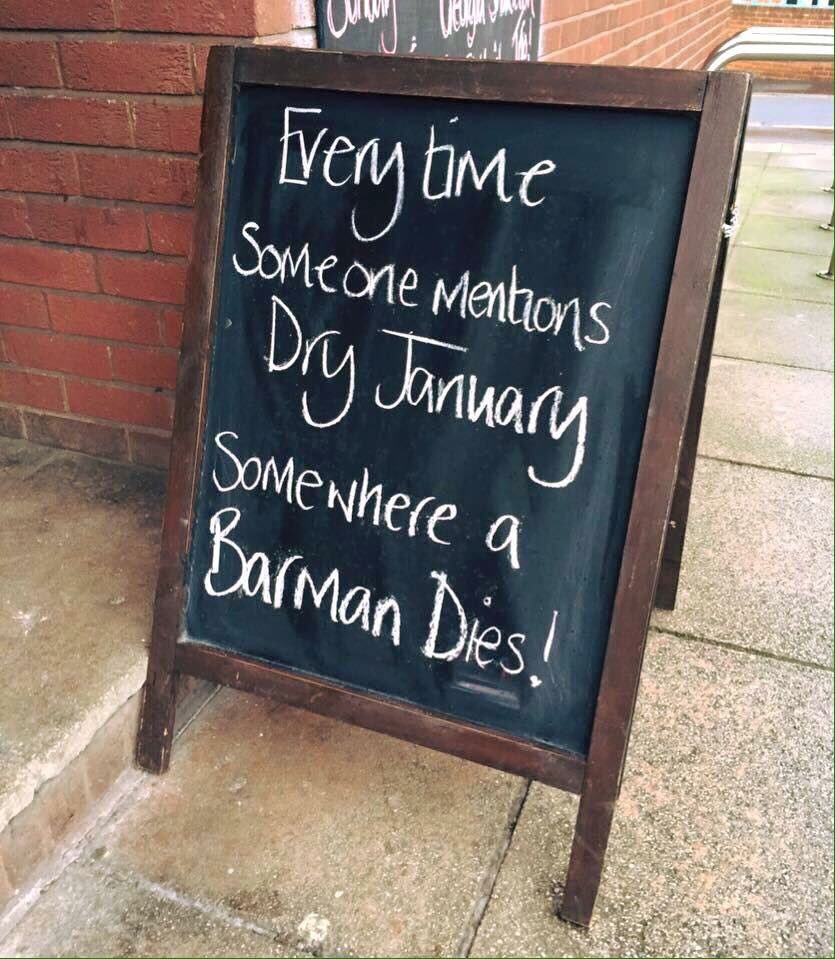 Every time
Someone Mentions
Dry January
Somewhere a
Barman Dies!